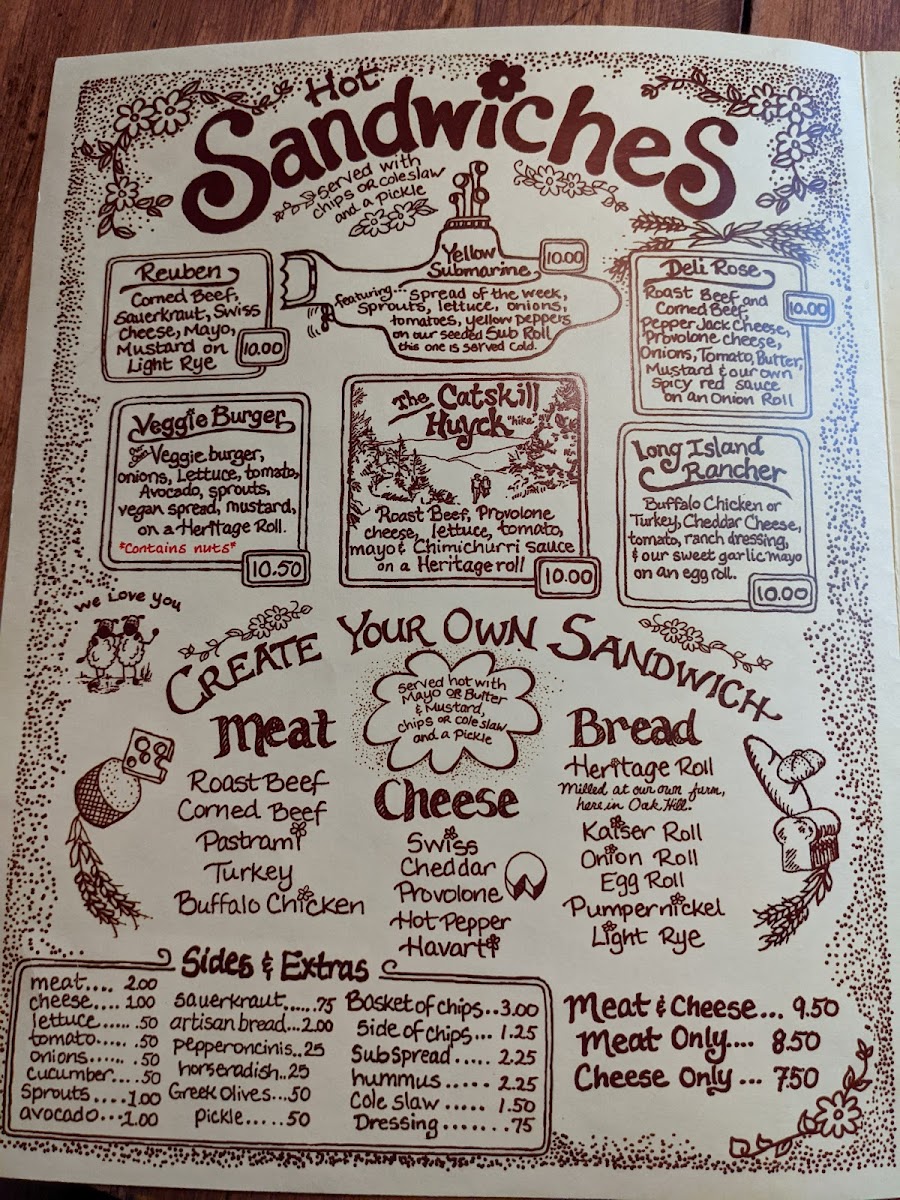 Hot
Sandwiches
served with
chips or coleslaw
and a pickle
Reuben
Corned Beef,
Sauerkraut, Swiss
Cheese, Mayo,
Mustard on
Light Rye
10.00
Yellow
Submarine
10.00
featuring... spread of the week,
Sprouts, lettuce, onions,
tomatoes, yellow peppers
on our seeded Sub Roll
this one is served cold.
Deli Rose
Roast Beef and
Corned Beef,
Pepper Jack Cheese,
Provolone cheese,
Onions, Tomato, Butter,
Mustard & our own
spicy red sauce
on an Onion Roll
10.00
Veggie Burger
our own Veggie burger,
onions, Lettuce, tomato,
Avocado, sprouts,
vegan spread, mustard,
on a Heritage Roll.
*Contains nuts*
10.50
The Catskill
Huyck "hike"
Roast Beef, Provolone
cheese, lettuce, tomato,
mayo & Chimichurri sauce
on a Heritage roll
10.00
Long Island
Rancher
Buffalo Chicken or
Turkey, Cheddar Cheese,
tomato, ranch dressing,
& our sweet garlic mayo
on an egg roll.
10.00
we Love you
Create Your Own Sandwich
served hot with
Mayo or Butter
& Mustard,
chips or cole slaw
and a pickle
Meat
Roast Beef
Corned Beef
Pastrami
Turkey
Buffalo Chicken
Cheese
Swiss
Cheddar
Provolone
Hot Pepper
Havarti
Bread
Heritage Roll
Milled at our own farm,
here in Oak Hill.
Kaiser Roll
Onion Roll
Egg Roll
Pumpernickel
Light Rye
Sides & Extras
meat.... 2.00
cheese.... 1.00
lettuce...... .50
tomato..... .50
onions...... .50
cucumber.... .50
Sprouts.....1.00
avocado...1.00
sauerkraut......75
artisan bread...2.00
pepperoncinis..25
horseradish..25
Greek Olives...50
pickle.....50
Basket of chips..3.00
side of chips... 1.25
Sub Spread..... 2.25
hummus...... 2.25
Cole slaw ..... 1.50
Dressing........75
Meat & Cheese... 9.50
Meat Only.... 8.50
Cheese Only ... 7.50